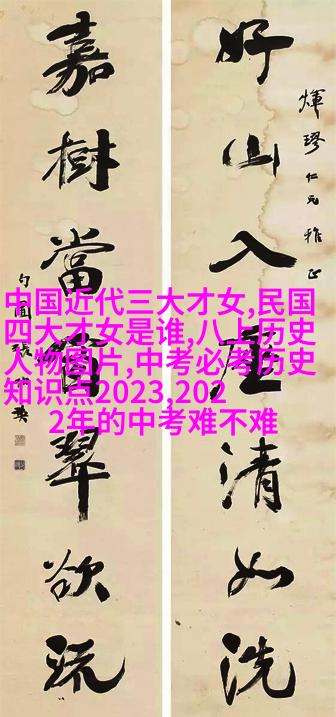 煇璆仁兄雅正
好山入座清如洗
嘉樹當窗翠欲流
中国近代三大才女,民国
四大才女是谁,八上历史
人物图片,中考必考历史
知识点2023,202
2年的中考难不难